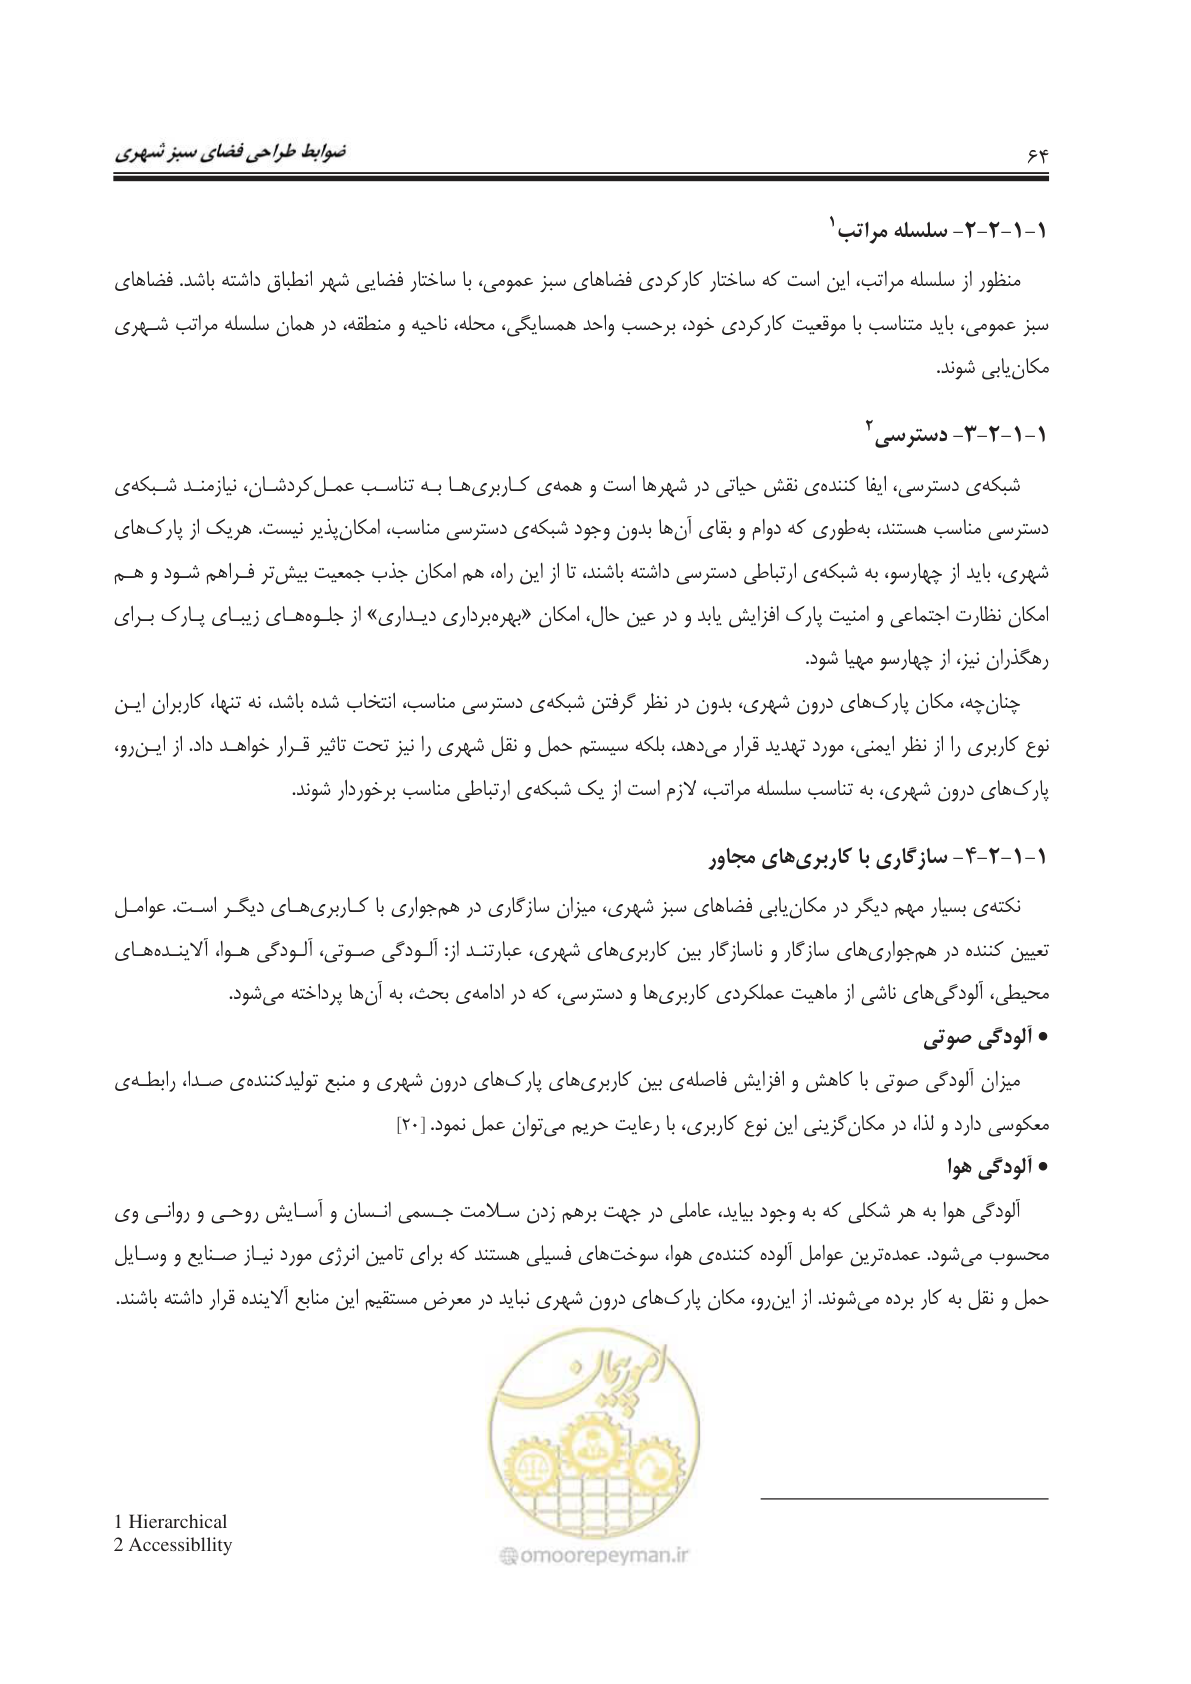 ۶۴
ضوابط طراحی فضای سبز شهری
۱-۱-۲-۲- سلسله مراتب۱
منظور از سلسله مراتب، این است که ساختار کارکردی فضاهای سبز عمومی، با ساختار فضایی شهر انطباق داشته باشد. فضاهای
سبز عمومی، باید متناسب با موقعیت کارکردی خود، برحسب واحد همسایگی، محله، ناحیه و منطقه، در همان سلسله مراتب شهری
مکان‌یابی شوند.
۱-۱-۲-۳- دسترسی۲
شبکه‌ی دسترسی، ایفا کننده‌ی نقش حیاتی در شهرها است و همه‌ی کاربری‌ها به تناسب عمل‌کردشان، نیازمند شبکه‌ی
دسترسی مناسب هستند، به‌طوری که دوام و بقای آن‌ها بدون وجود شبکه‌ی دسترسی مناسب، امکان‌پذیر نیست. هریک از پارک‌های
شهری، باید از چهارسو، به شبکه‌ی ارتباطی دسترسی داشته باشند، تا از این راه، هم امکان جذب جمعیت بیش‌تر فراهم شود و هم
امکان نظارت اجتماعی و امنیت پارک افزایش یابد و در عین حال، امکان «بهره‌برداری دیداری» از جلوه‌های زیبای پارک برای
رهگذران نیز، از چهارسو مهیا شود.
چنان‌چه، مکان پارک‌های درون شهری، بدون در نظر گرفتن شبکه‌ی دسترسی مناسب، انتخاب شده باشد، نه تنها، کاربران این
نوع کاربری را از نظر ایمنی، مورد تهدید قرار می‌دهد، بلکه سیستم حمل و نقل شهری را نیز تحت تاثیر قرار خواهد داد. از این‌رو،
پارک‌های درون شهری، به تناسب سلسله مراتب، لازم است از یک شبکه‌ی ارتباطی مناسب برخوردار شوند.
۱-۱-۲-۴- سازگاری با کاربری‌های مجاور
نکته‌ی بسیار مهم دیگر در مکان‌یابی فضاهای سبز شهری، میزان سازگاری در هم‌جواری با کاربری‌های دیگر است. عوامل
تعیین کننده در هم‌جواری‌های سازگار و ناسازگار بین کاربری‌های شهری، عبارتند از: آلودگی صوتی، آلودگی هوا، آلاینده‌های
محیطی، آلودگی‌های ناشی از ماهیت عملکردی کاربری‌ها و دسترسی، که در ادامه‌ی بحث، به آن‌ها پرداخته می‌شود.
• آلودگی صوتی
میزان آلودگی صوتی با کاهش و افزایش فاصله‌ی بین کاربری‌های پارک‌های درون شهری و منبع تولیدکننده‌ی صدا، رابطه‌ی
معکوسی دارد و لذا، در مکان‌گزینی این نوع کاربری، با رعایت حریم می‌توان عمل نمود. [۲۰]
• آلودگی هوا
آلودگی هوا به هر شکلی که به وجود بیاید، عاملی در جهت برهم زدن سلامت جسمی انسان و آسایش روحی و روانی وی
محسوب می‌شود. عمده‌ترین عوامل آلوده کننده‌ی هوا، سوخت‌های فسیلی هستند که برای تامین انرژی مورد نیاز صنایع و وسایل
حمل و نقل به کار برده می‌شوند. از این‌رو، مکان پارک‌های درون شهری نباید در معرض مستقیم این منابع آلاینده قرار داشته باشند.
امور پیمان
1 Hierarchical
2 Accessibllity
omoorepeyman.ir